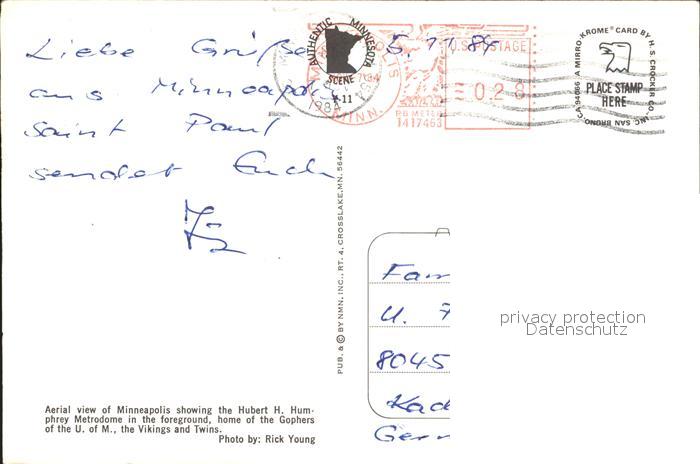 Liebe Grüße
5.11.84
aus Minneapolis
saint Paul
sendet Euch
AUTHENTIC MINNESOTA
SCENE
MINN.
U.S. POSTAGE
028
PB METER
1417463
A MIRRO-KROME® CARD BY H. S. CROCKER CO., INC. SAN BRUNO CA 94066
PLACE STAMP
HERE
PUB. & © BY NMN, INC., RT. 4, CROSSLAKE, MN. 56442
Fam
U.
8045
Kad
Ger
privacy protection
Datenschutz
Aerial view of Minneapolis showing the Hubert H. Hum-
phrey Metrodome in the foreground, home of the Gophers
of the U. of M., the Vikings and Twins.
Photo by: Rick Young